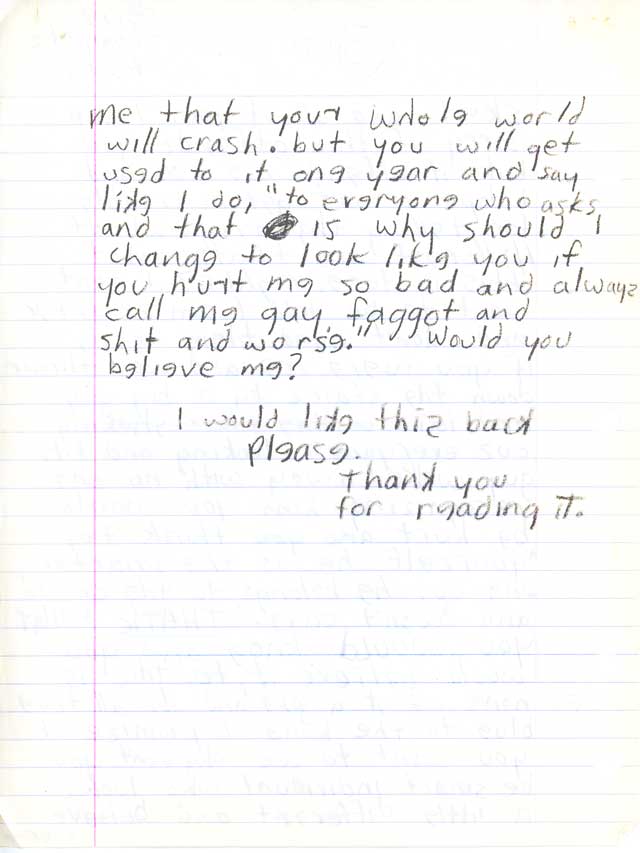 me that your whole world
will crash. but you will get
used to it one year and say
like I do, "to everyone who asks
and that is why should I
change to look like you if
you hurt me so bad and always
call me gay, faggot and
shit and worse." Would you
believe me?
I would like this back
please.
thank you
for reading it.